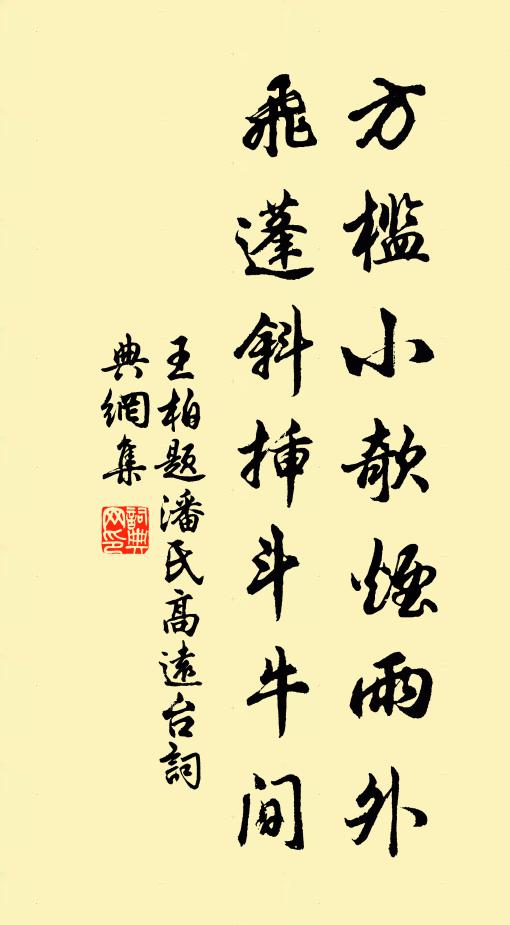 方檻小欹煙雨外
飛蓬斜挿斗牛间
王柏题潘氏高遠台詞
典網集
詞典
网印